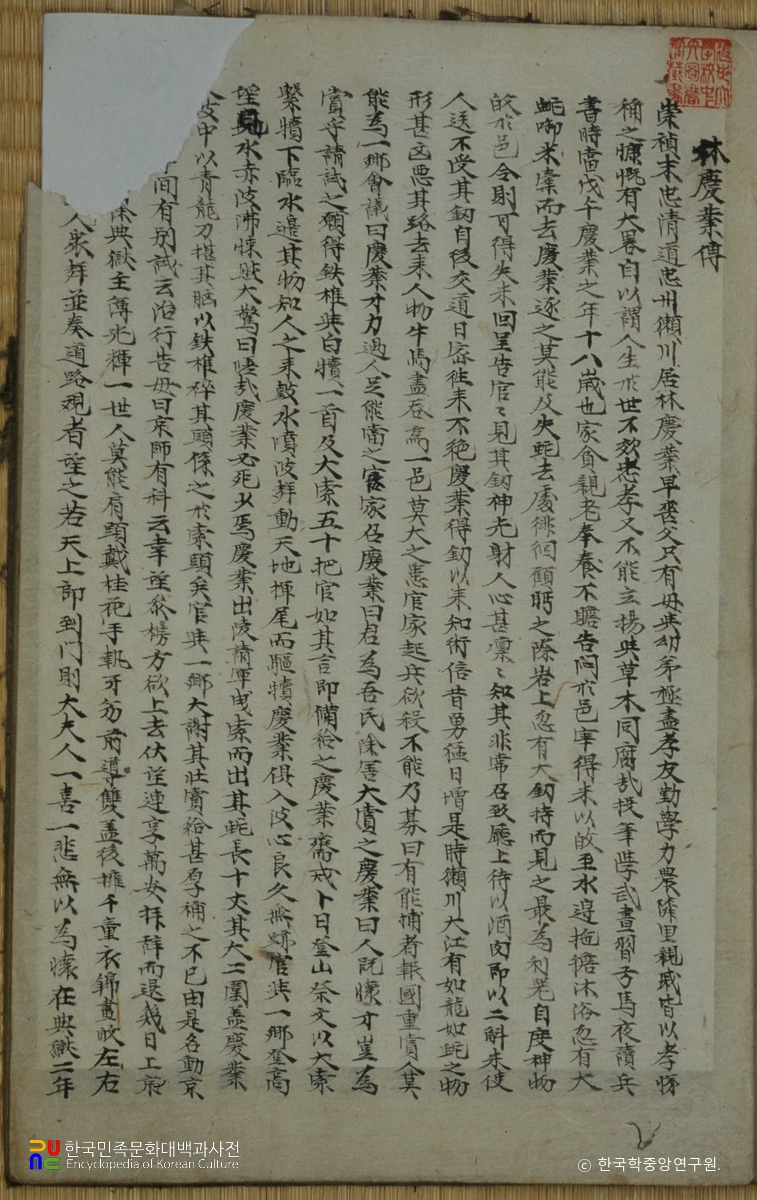 林慶業傳
崇禎末忠清道忠州㺚川居林慶業早喪父只有母與幼弟極盡孝友勤學力農隣里親戚皆以孝悌
稱之慷慨有大畧自以謂人生於世不效忠孝又不能立揚與草木同腐哉投筆學武晝習弓馬夜讀兵
書時當戊午慶業之年十八歲也家貧親老奉養不贍告悶於邑宰得米以故至水邊拖擔沐浴忽有大
蛇啣米橐而去慶業逐之莫能及失蛇去處徘徊顧眄之際岩上忽有大釰持而見之最為利兵自度神物
故於邑令則可得失米回呈告官〻見其釰神光射人心甚凜〻知其非常召致廳上待以酒肉即以二斛米使
人送不受其釰自後交道日密徃来不絶慶業得釰以来知術倍昔勇猛日增是時㺚川大江有如龍如蛇之物
形甚凶悪其路去来人物牛馬盡吞焉一邑莫大之患官家起兵欲殺不能乃募曰有能捕者報國重賞人莫
能為一鄕會議曰慶業才力過人足能當之官家召慶業曰君為吾民除害大賞之慶業曰人既懷才豈為
賞乎請試之願得鉄椎與白犢一首及大索五十把官如其言即備給之慶業齋戒卜日登山祭文以大索
繫犢下臨水邊其物知人之来鼓水噴波舞動天地揮尾而驅犢慶業俱入波心良久無蹤官與一鄕登高
望見水赤波沸悚然大驚曰惜哉慶業必死少焉慶業出陵請軍曳索而出其蛇長十丈其大二圍盖慶業
皮中以青龍刀揕其腦以鉄椎碎其頭係之於索頭矣官與一鄕大謝其壯賞給甚厚稱之不已由是名動京
間有別試云治行告母曰京師有科云幸望参榜方欲上去伏望連享萬安拜辞而退幾日上京
典獄主簿光輝一世人莫能肩頭戴桂花手執牙笏前導雙盖後擁千童衣錦晝䀜左右
人衆舞並奏道路覌者望之若天上郎到門則大夫人一喜一悲無以為懷在典獄二年
한국민족문화대백과사전
Encyclopedia of Korean Culture
© 한국학중앙연구원.